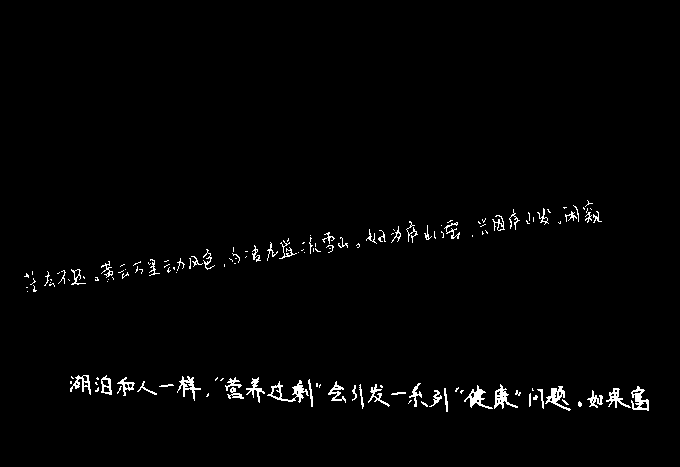 茫去不还。黄云万里动风色，白波九道流雪山。好为庐山谣，兴因庐山发。闲窥
湖泊和人一样，“营养过剩”会引发一系列“健康”问题。如果富